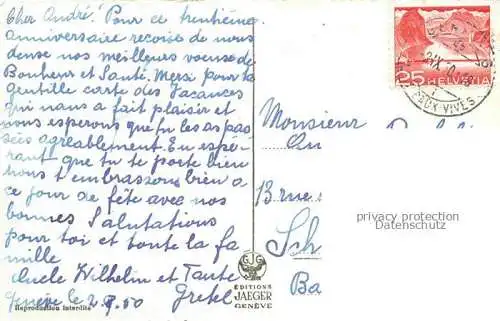 Cher André! Pour ce trentième
anniversaire recois de nous
deux nos meilleurs voeux de
Bonheur et Santé. Mersi pour ta
gentille carte des Vacances
qui nous a fait plaisir et
nous esperons que tu les as pas
sées agreablement. En espé-
rant que tu te porte bien
nous t'embrassons bien a
ce jour de fête avec nos
bonnes Salutations
pour toi et toute la fa
mille
Oncle Wilhelm et Tante
Genève le 2.9.50 Gretel
Reproduction interdite
EDITIONS
JAEGER
GENÈVE
25 HELVETIA
EAUX-VIVES
Monsieur
13 rue
Sch
Ba
privacy protection
Datenschutz